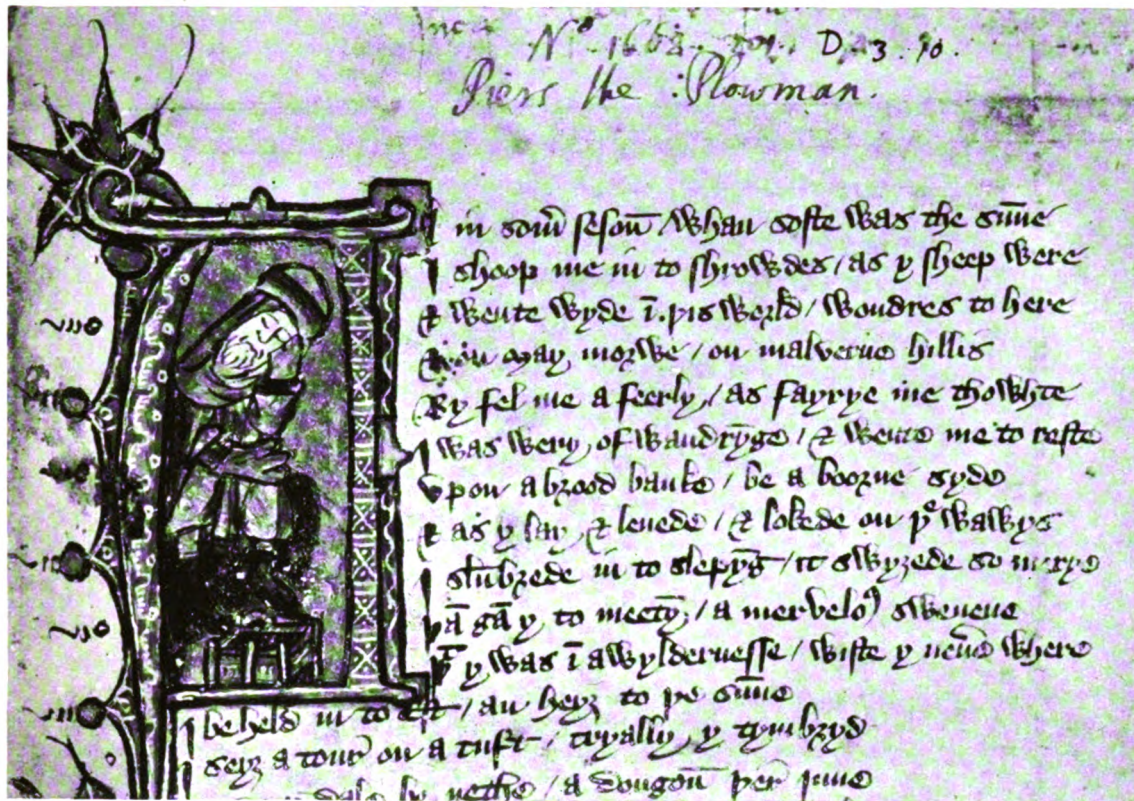 Nº 1662 D.3.10.
Piers the Plowman.
in som̄ seson̄ / whan softe was the sūne
I shoop me in to shrowdes / as y sheep were
& wente wyde ī þis world / wondres to here
may morwe / on malverne hillis
By fel me a feerly / as fayrye me thowhte
I was wery of wandrȳge / & wente me to reste
vpon a brood banke / be a boorne syde
& as y lay & lenede / & lokede on þe wawys
I slūbrede in to slepȳg / it swyȝede so merye
þā gā y to meetȳ / a mervelo⁹ swevene
þt y was ī a wyldernesse / wiste y nev̄e where
I be held in to est / an heyȝ to þe sūne
I seyȝ a tour on a tuft / tryally y tymbryd
dale by nethe / a dongoū þer inne